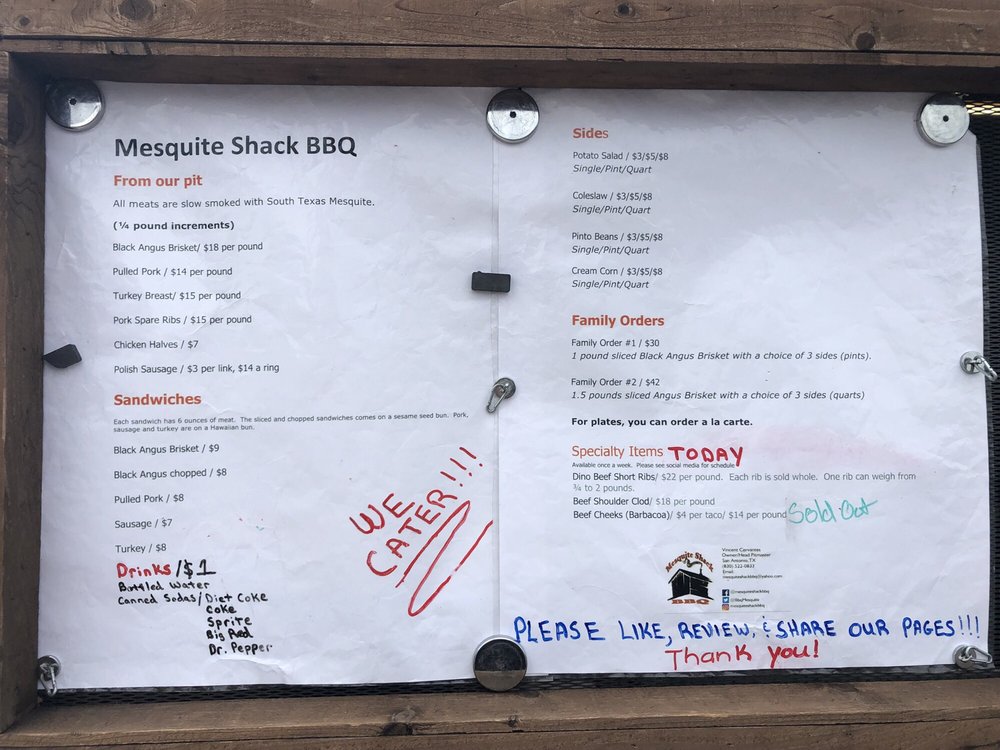 Mesquite Shack BBQ
From our pit
All meats are slow smoked with South Texas Mesquite.
(¼ pound increments)
Black Angus Brisket/ $18 per pound
Pulled Pork / $14 per pound
Turkey Breast/ $15 per pound
Pork Spare Ribs / $15 per pound
Chicken Halves / $7
Polish Sausage / $3 per link, $14 a ring
Sandwiches
Each sandwich has 6 ounces of meat. The sliced and chopped sandwiches comes on a sesame seed bun. Pork,
sausage and turkey are on a Hawaiian bun.
Black Angus Brisket / $9
Black Angus chopped / $8
Pulled Pork / $8
Sausage / $7
Turkey / $8
Drinks/$1
Bottled Water
Canned Sodas/Diet Coke
Coke
Sprite
Big Red
Dr. Pepper
WE
CATER!!!
Sides
Potato Salad / $3/$5/$8
Single/Pint/Quart
Coleslaw / $3/$5/$8
Single/Pint/Quart
Pinto Beans / $3/$5/$8
Single/Pint/Quart
Cream Corn / $3/$5/$8
Single/Pint/Quart
Family Orders
Family Order #1 / $30
1 pound sliced Black Angus Brisket with a choice of 3 sides (pints).
Family Order #2 / $42
1.5 pounds sliced Angus Brisket with a choice of 3 sides (quarts)
For plates, you can order a la carte.
Specialty Items TODAY
Available once a week. Please see social media for schedule
Dino Beef Short Ribs/ $22 per pound. Each rib is sold whole. One rib can weigh from
¾ to 2 pounds.
Beef Shoulder Clod/ $18 per pound
Beef Cheeks (Barbacoa)/ $4 per taco/ $14 per pound Sold Out
Mesquite Shack
BBQ
Vincent Cervantes
Owner/Head Pitmaster
San Antonio, TX
(830) 522-0833
Email:
mesquiteshackbbq@yahoo.com
@mesquiteshackbbq
@BbqMesquite
mesquiteshackbbq
PLEASE LIKE, REVIEW, & SHARE OUR PAGES!!!
Thank you!